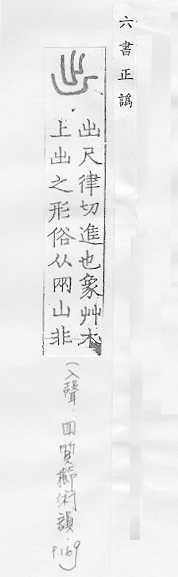 六書正譌
出尺律切進也象艸木
上出之形俗从兩山非
(入聲.四質櫛術韻.P.169)